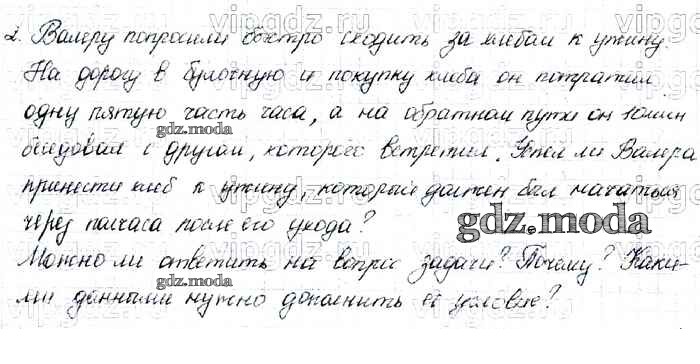 2. Валеру попросили быстро сходить за хлебом к ужину.
На дорогу в булочную и покупку хлеба он потратил
одну пятую часть часа, а на обратном пути он 10 мин
беседовал с другом, которого встретил. Успел ли Валера
принести хлеб к ужину, который должен был начаться
через полчаса после его ухода?
Можно ли ответить на вопрос задачи? Почему? Каки-
ми данными нужно дополнить её условие?
gdz.moda
gdz.moda
gdz.moda
vipgdz.ru